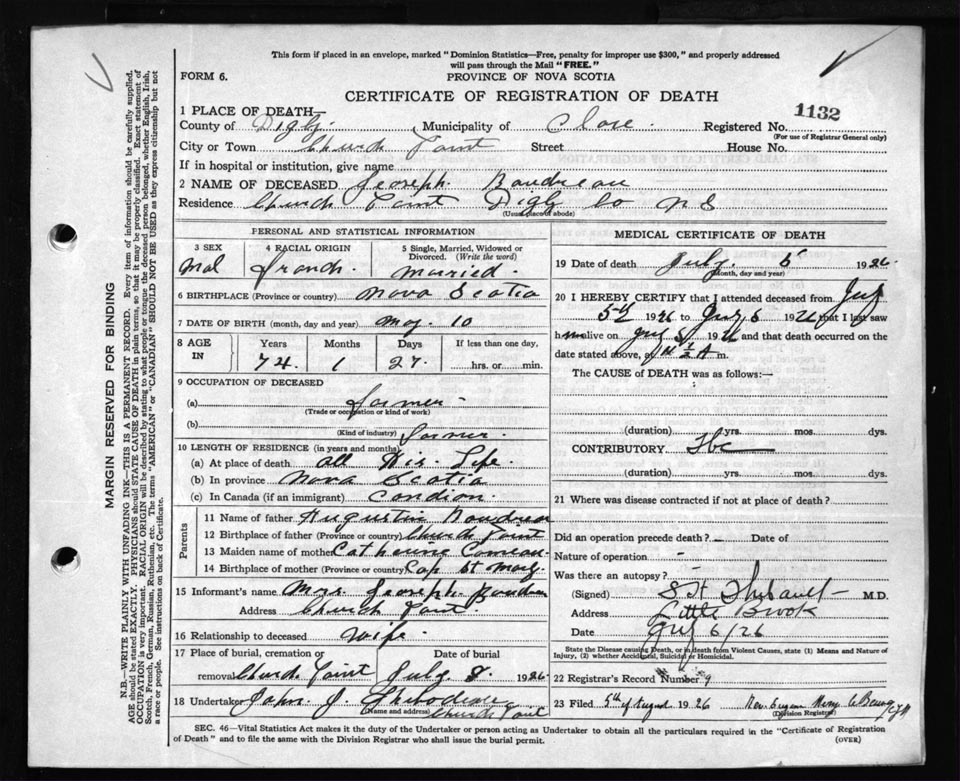 This form if placed in an envelope, marked "Dominion Statistics—Free, penalty for improper use $300," and properly addressed
will pass through the Mail "FREE."
FORM 6.
PROVINCE OF NOVA SCOTIA
CERTIFICATE OF REGISTRATION OF DEATH
1132
1 PLACE OF DEATH—
County of Digby Municipality of Clare Registered No.
(For use of Registrar General only)
City or Town Church Point Street House No.
If in hospital or institution, give name
2 NAME OF DECEASED Joseph Boudreau
Residence Church Point Digby Co N S
(Usual place of abode)
PERSONAL AND STATISTICAL INFORMATION
3 SEX
Mal
4 RACIAL ORIGIN
French
5 Single, Married, Widowed or
Divorced. (Write the word)
Married
6 BIRTHPLACE (Province or country) Nova Scotia
7 DATE OF BIRTH (month, day and year) May 10
8 AGE
IN
Years Months Days If less than one day,
74 1 27 hrs. or min.
9 OCCUPATION OF DECEASED
(a) Farmer
(Trade or occupation or kind of work)
(b)
(Kind of industry) Farmer
10 LENGTH OF RESIDENCE (in years and months)
(a) At place of death all His Life
(b) In province Nova Scotia
(c) In Canada (if an immigrant)
Parents
11 Name of father Augustin
12 Birthplace of father (Province or country) Church Point
13 Maiden name of mother Catherine Comeau
14 Birthplace of mother (Province or country) Cap St Mary
15 Informant's name Mrs Joseph
Address Church Point
16 Relationship to deceased Wife
17 Place of burial, cremation or Date of burial
removal Church Point July 8 1926
18 Undertaker John J. Thibodeau
(Name and address) Church Point
MEDICAL CERTIFICATE OF DEATH
19 Date of death July 6 1926
(Month, day and year)
20 I HEREBY CERTIFY that I attended deceased from July
5th 1926 to July 6 1926 that I last saw
h m alive on July 5 19 and that death occurred on the
date stated above, at A m.
The CAUSE of DEATH was as follows:—
(duration) yrs. mos. dys.
CONTRIBUTORY Tbc
(duration) yrs. mos. dys.
21 Where was disease contracted if not at place of death?
Did an operation precede death? — Date of
Nature of operation -
Was there an autopsy?
(Signed) Thibault M.D.
Address Little Brook
Date July 6/26
State the Disease causing Death, or in death from Violent Causes, state (1) Means and Nature of
Injury, (2) whether Accidental, Suicidal or Homicidal.
22 Registrar's Record Number 9
23 Filed 5th of August 1926 Rev. Eugene
(Division Registrar)
SEC. 46—Vital Statistics Act makes it the duty of the Undertaker or person acting as Undertaker to obtain all the particulars required in the "Certificate of Registration
of Death" and to file the same with the Division Registrar who shall issue the burial permit.
(OVER)
MARGIN RESERVED FOR BINDING
N.B.—WRITE PLAINLY WITH UNFADING INK—THIS IS A PERMANENT RECORD. Every item of information should be carefully supplied.
AGE should be stated EXACTLY. PHYSICIANS should STATE CAUSE OF DEATH in plain terms, so that it may be properly classified. Exact statement of
OCCUPATION is very important. RACIAL ORIGIN will be described by stating to what people or tongue the deceased person belonged, whether English, Irish,
Scotch, French, German, Russian, Ruthenian, etc. The terms "AMERICAN" or "CANADIAN" SHOULD NOT BE USED as they express citizenship but not
a race or people. See instructions on back of Certificate.